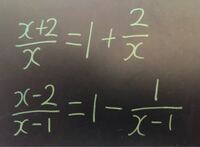 (x+2)/x = 1 + 2/x
(x-2)/(x-1) = 1 - 1/(x-1)